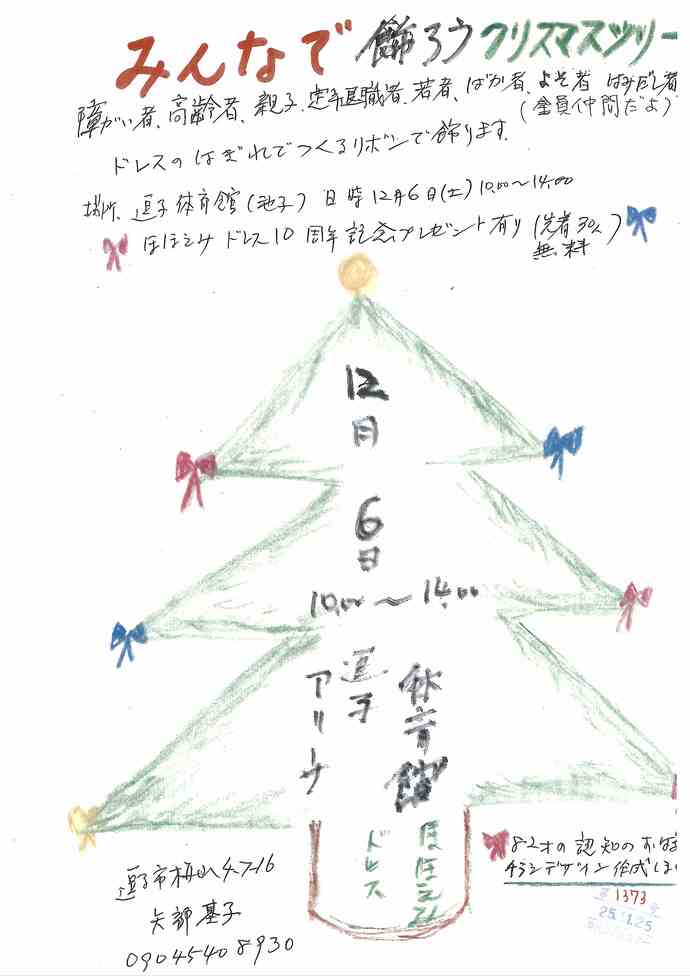 みんなで飾ろうクリスマスツリー
障がい者、高齢者、親子、定年退職者、若者、ばか者、よそ者 はみだし者
(全員仲間だよ)
ドレスのはぎれでつくるリボンで飾ります。
場所、逗子体育館(池子) 日時12月6日(土)10.00〜14.00
ほほえみドレス10周年記念プレゼント有り(先着30人)
無料
12月
6日
10.00〜14.00
逗子
アリーナ
体育館
ほほえみ
ドレス
82才の認知の
チラシデザイン作成しま
逗子市桜山4-7-16
矢部基子
09045408930
1373
25.11.25